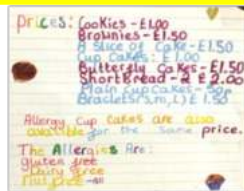 prices: Cookies - £1.00
Brownies - £1.50
A slice of Cake - £1.50
Cup Cakes: £1.00
Butterfly Cakes - £1.50
Short Bread - 2 £2.00
Plain Cupcakes - 50p
Braclets(s,m,L) £1.50
Allergy Cup cakes are also
for the same price.
The Allergies Are:
gluten free
Dairy free
Nut free - all